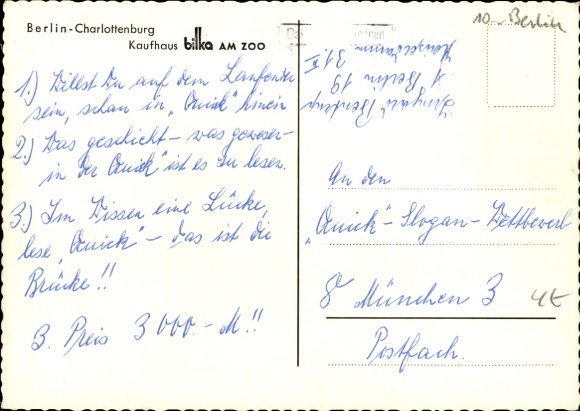 Berlin-Charlottenburg
Kaufhaus bilka AM ZOO
1.) Willst Du auf dem Laufenden
sein, schau in „Quick" hinein
2.) Was geschieht – was gewesen –
in der „Quick" ist es zu lesen.
3.) Im Wissen eine Lücke,
lese „Quick" – das ist die
Brücke!!
3. Preis 3000.- M!!
10-Berlin
1 Berlin 19
An den
„Quick" – Slogan – Wettbewerb
8 München 3
Postfach.
4€